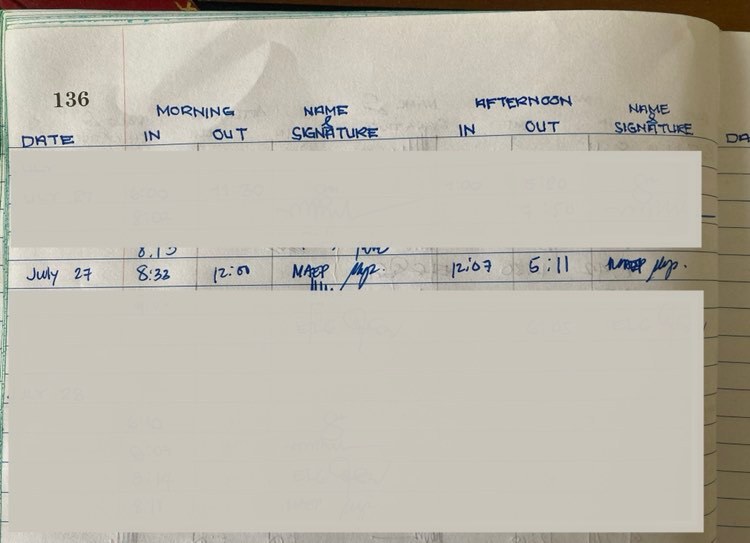 136
MORNING NAME AFTERNOON NAME
& &
DATE IN OUT SIGNATURE IN OUT SIGNATURE DA
July 27 8:33 12:00 MAEP 12:07 5:11 MAEP